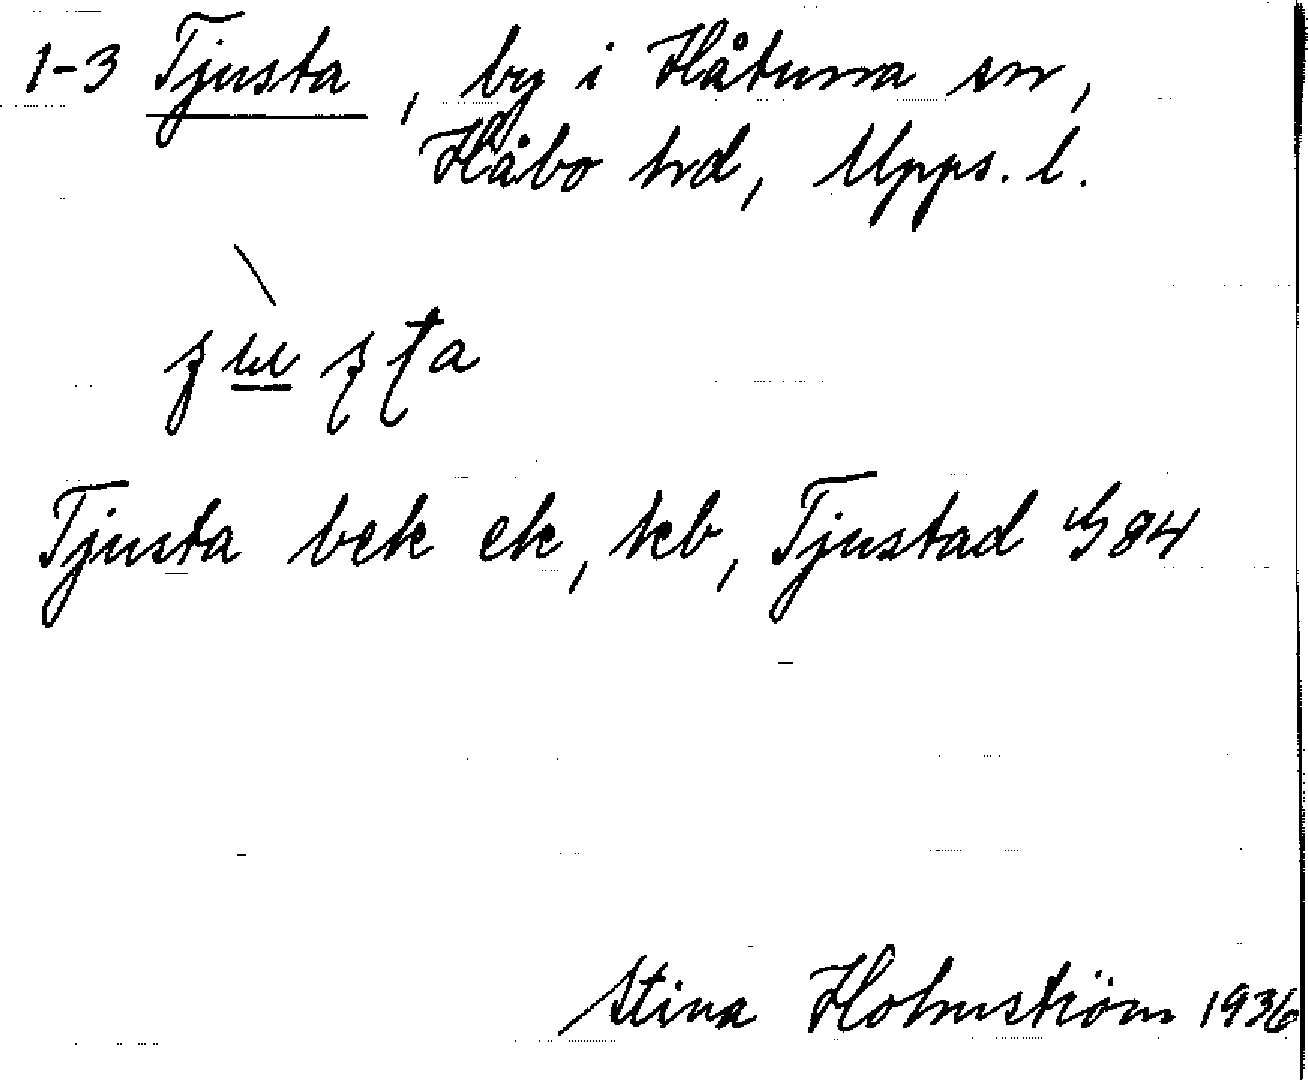 1-3 Tjusta, by i Håtuna sn,
Håbo hd, Upps. l.
Tjusta bek ek, kb, Tjustad G84
Stina Holmström 1936